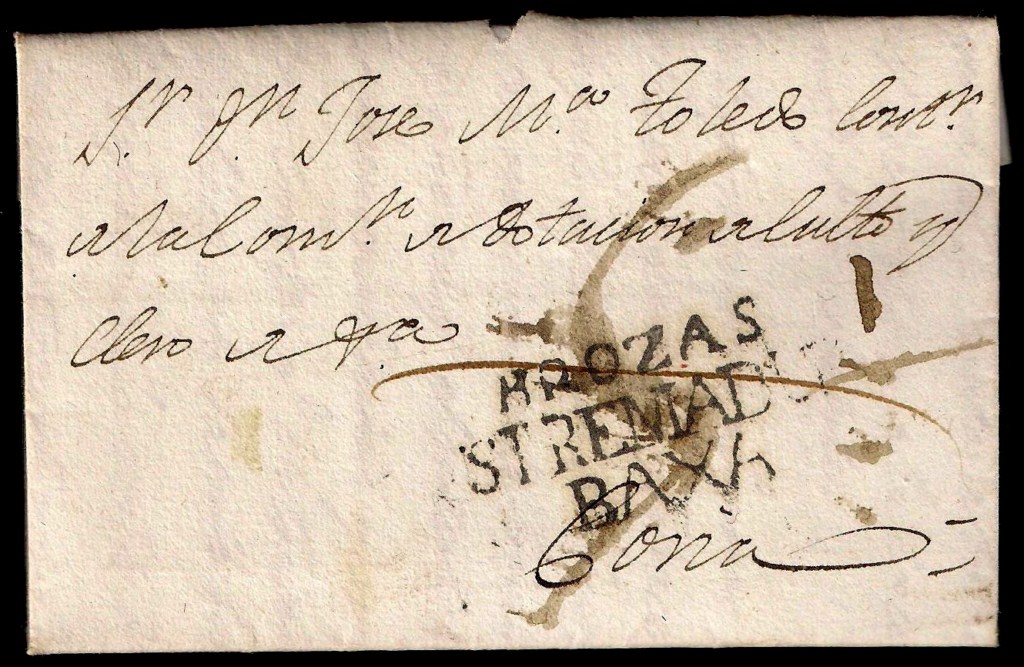 Sr. Dn. Jose Ma. Toledo Contr.
de la Comn. de dotacion de Culto y
Clero de
BROZAS
ESTREMADU
BAXA
Coria